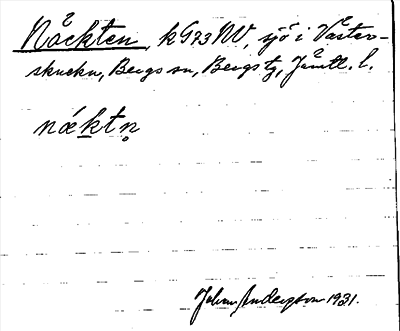 Näckten, k G73 NV, sjö i Väster-
skucku, Bergs sn, Bergs tg, Jämtl. l.
näktn̥
Johan Anderzson 1931.